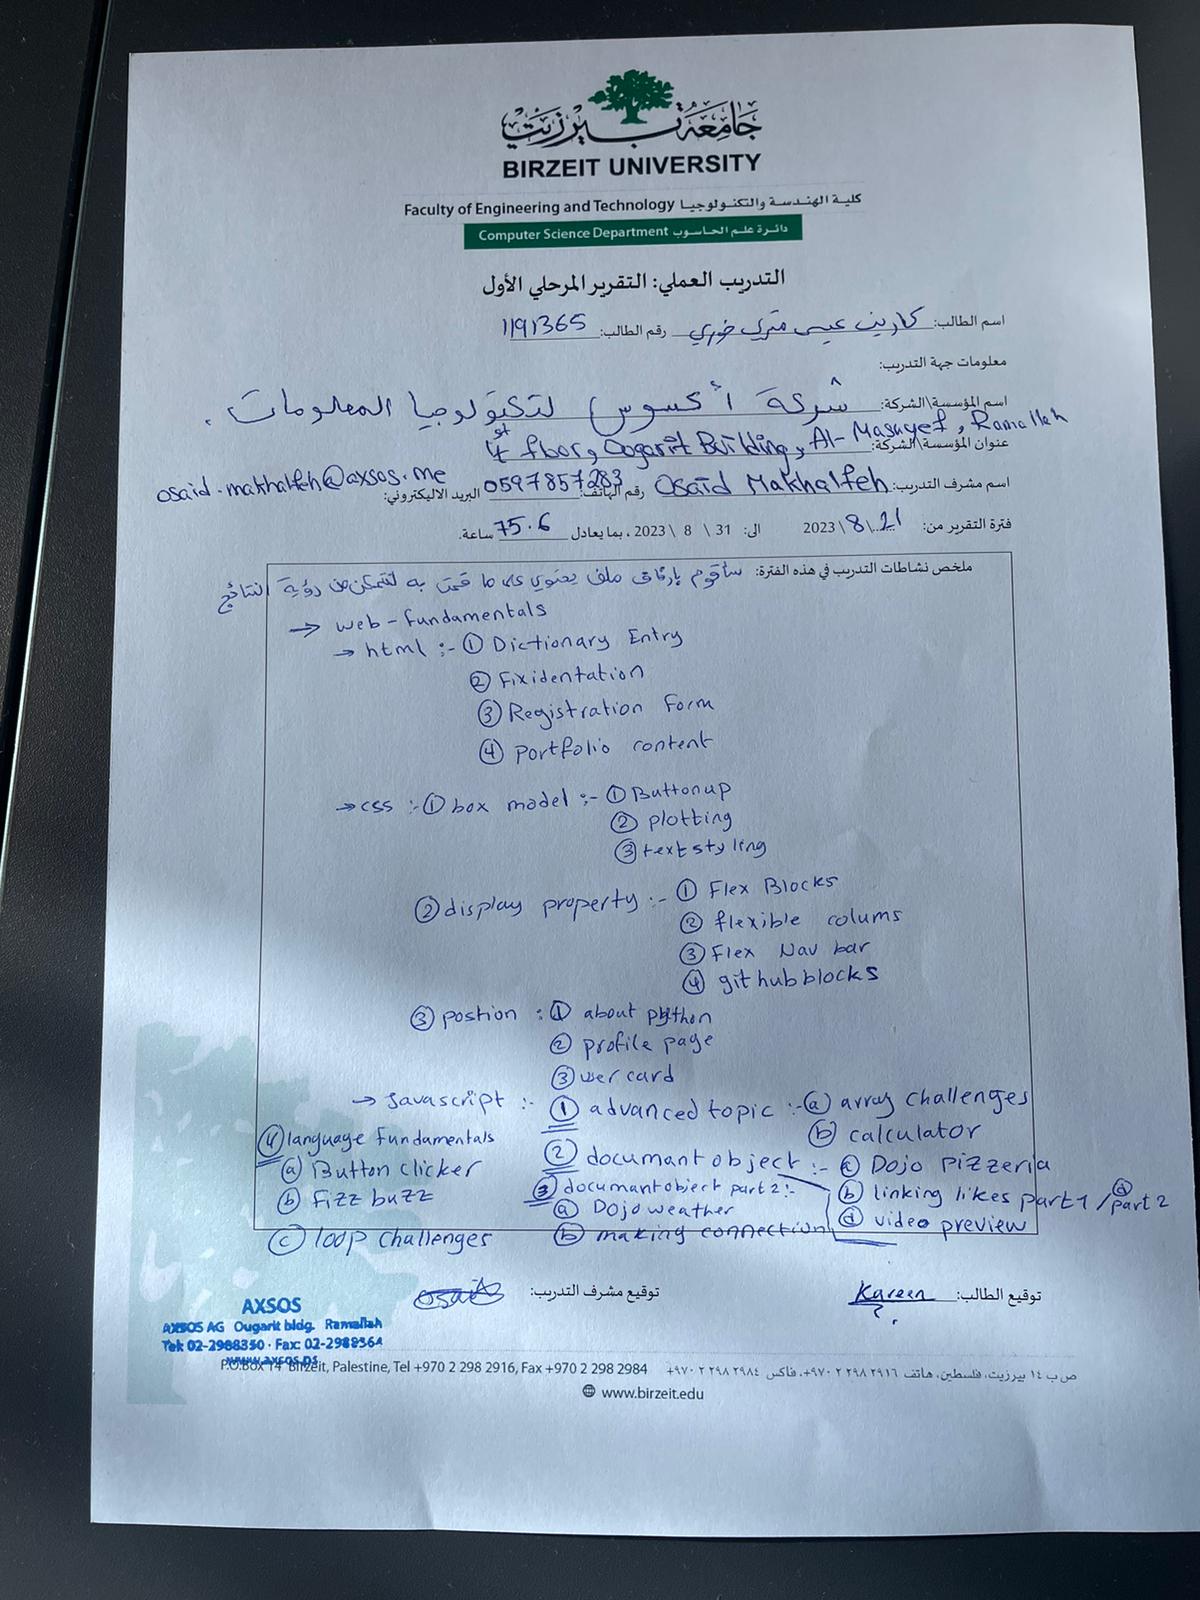 جامعة بيرزيت
BIRZEIT UNIVERSITY
Faculty of Engineering and Technology كلية الهندسة والتكنولوجيا
Computer Science Department دائرة علم الحاسوب
التدريب العملي: التقرير المرحلي الأول
اسم الطالب: كارين عيسى متري خوري رقم الطالب: 1191365
معلومات جهة التدريب:
اسم المؤسسة\الشركة: شركة أكسوس لتكنولوجيا المعلومات.
عنوان المؤسسة\الشركة: floor, Oogarit Building, Al-Masayef, Ramallah
اسم مشرف التدريب: Osaid Makhalfeh رقم الهاتف: 0597857283 البريد الاليكتروني: osaid.makhalfeh@axsos.me
فترة التقرير من: 21 \ 8 \ 2023 الى: 31 \ 8 \ 2023 ، بما يعادل 75.6 ساعة.
ملخص نشاطات التدريب في هذه الفترة: سأقوم بإرفاق ملف يحتوي على ما قمت به لتتمكن من رؤية النتائج
→ web-fundamentals
→ html :- ① Dictionary Entry
② Fixidentation
③ Registration Form
④ portfolio content
→ css :- ① box model :- ① Buttonup
② plotting
③ text styling
② display property :- ① Flex Blocks
② flexible colums
③ Flex Nav bar
④ github blocks
③ postion :- ① about python
② profile page
③ user card
→ Javascript :- ① advanced topic :- ⓐ array challenges
ⓑ calculator
② documant object :- ⓐ Dojo Pizzeria
ⓑ linking likes part 1 / ⓒ part 2
ⓓ video preview
③ documant object part 2 :-
ⓐ Dojo weather
ⓑ making connection
④ language fundamentals
ⓐ Button clicker
ⓑ Fizz buzz
ⓒ loop challenges
توقيع الطالب: Kareen توقيع مشرف التدريب: Osaid
AXSOS
AXSOS AG Ougarit bldg. Ramallah
Tel: 02-2988350 · Fax: 02-2988364
www.axsos.ps
P.O.Box 14 Birzeit, Palestine, Tel +970 2 298 2916, Fax +970 2 298 2984 ص ب ١٤ بيرزيت، فلسطين، هاتف ٢٩١٦ ٢٩٨ ٢ ٩٧٠+، فاكس ٢٩٨٤ ٢٩٨ ٢ ٩٧٠+
www.birzeit.edu